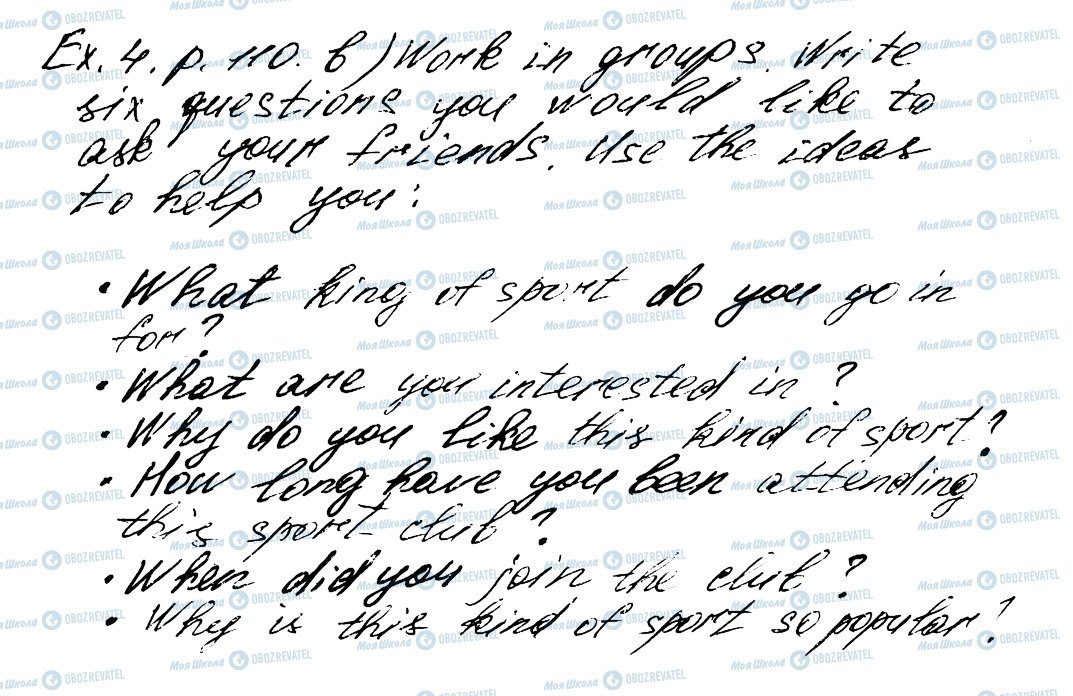 Ex. 4. p. 110. b) Work in groups. Write
six questions you would like to
ask your friends. Use the ideas
to help you:
• What king of sport do you go in
for?
• What are you interested in?
• Why do you like this kind of sport?
• How long have you been attending
this sport club?
• When did you join the club?
• Why is this kind of sport so popular?